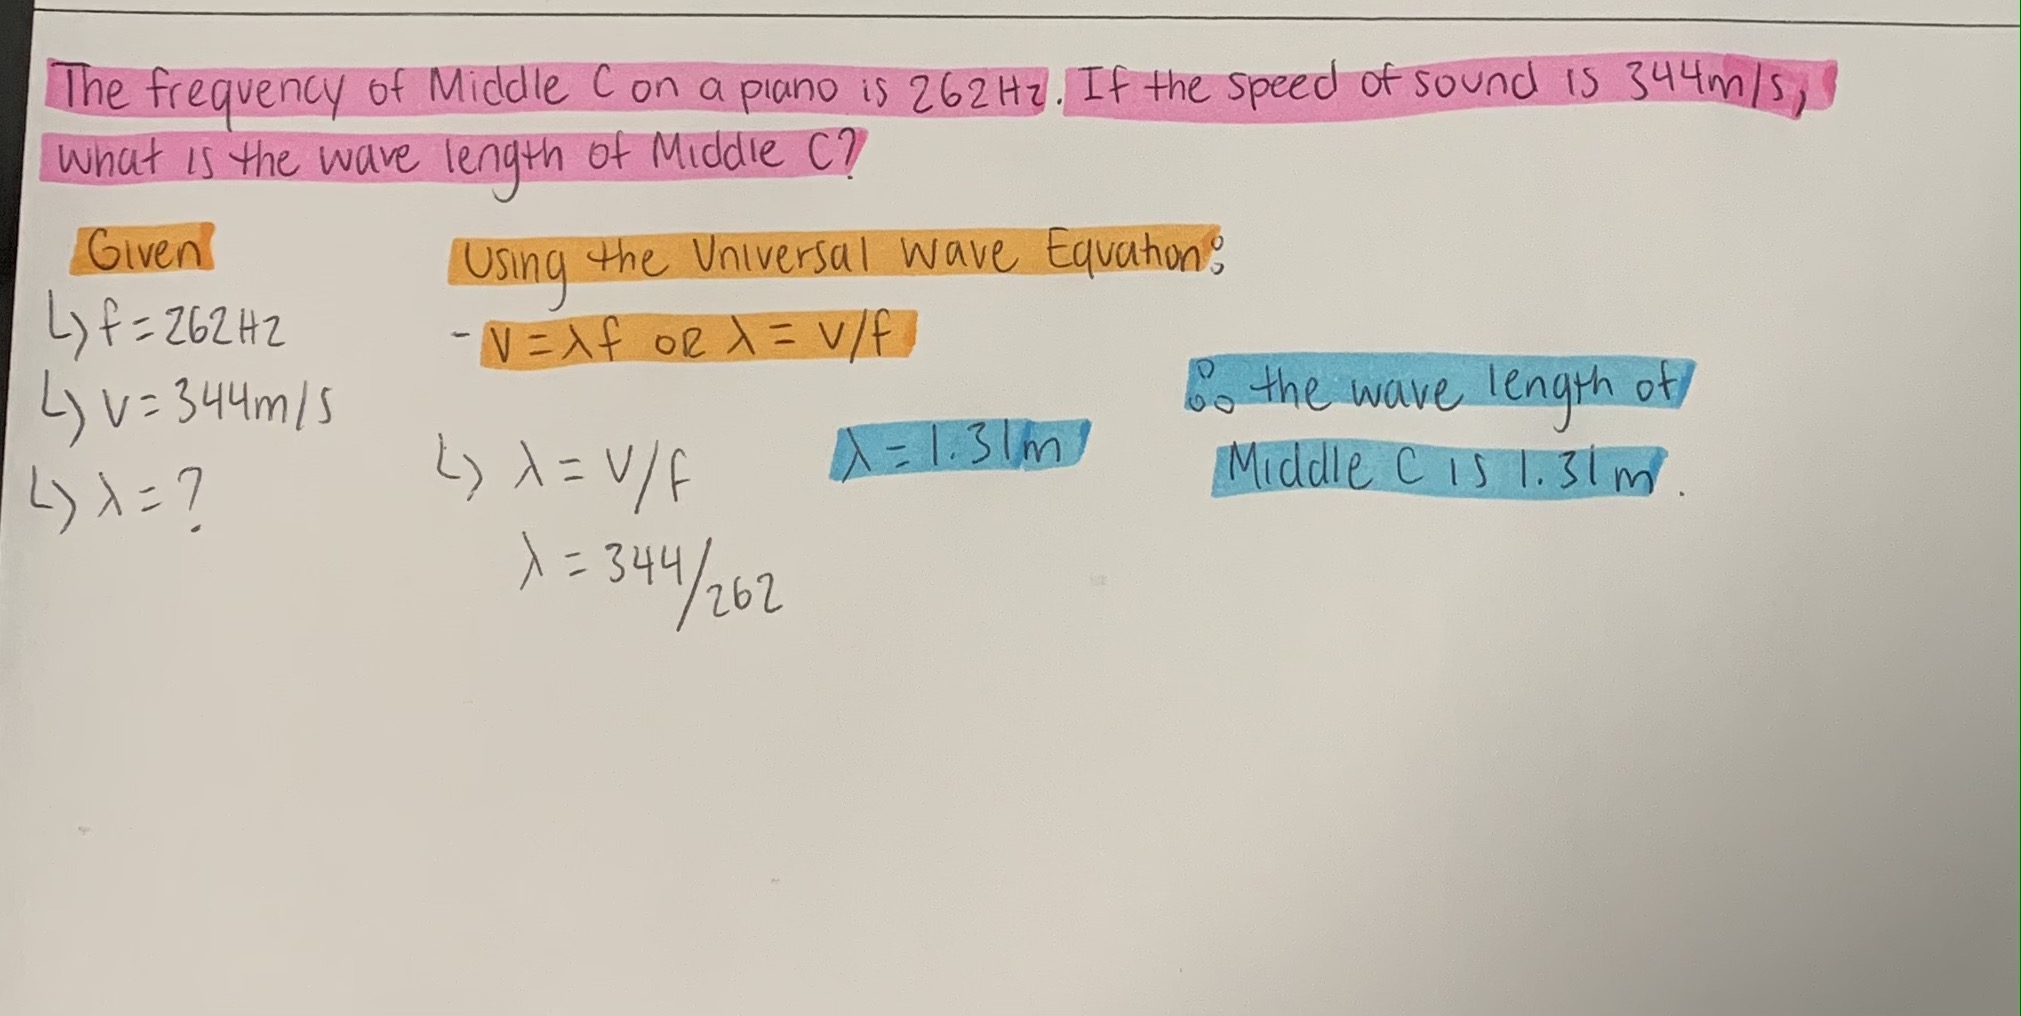 The frequency of Middle C on a piano is 262Hz. If the speed of sound is 344m/s,
what is the wave length of Middle C?
Given
↳ f = 262Hz
↳ v = 344m/s
↳ λ = ?
Using the Universal Wave Equation:
- v = λf OR λ = v/f
↳ λ = v/f
λ = 344/262
λ = 1.31m
∴ the wave length of
Middle C is 1.31m.